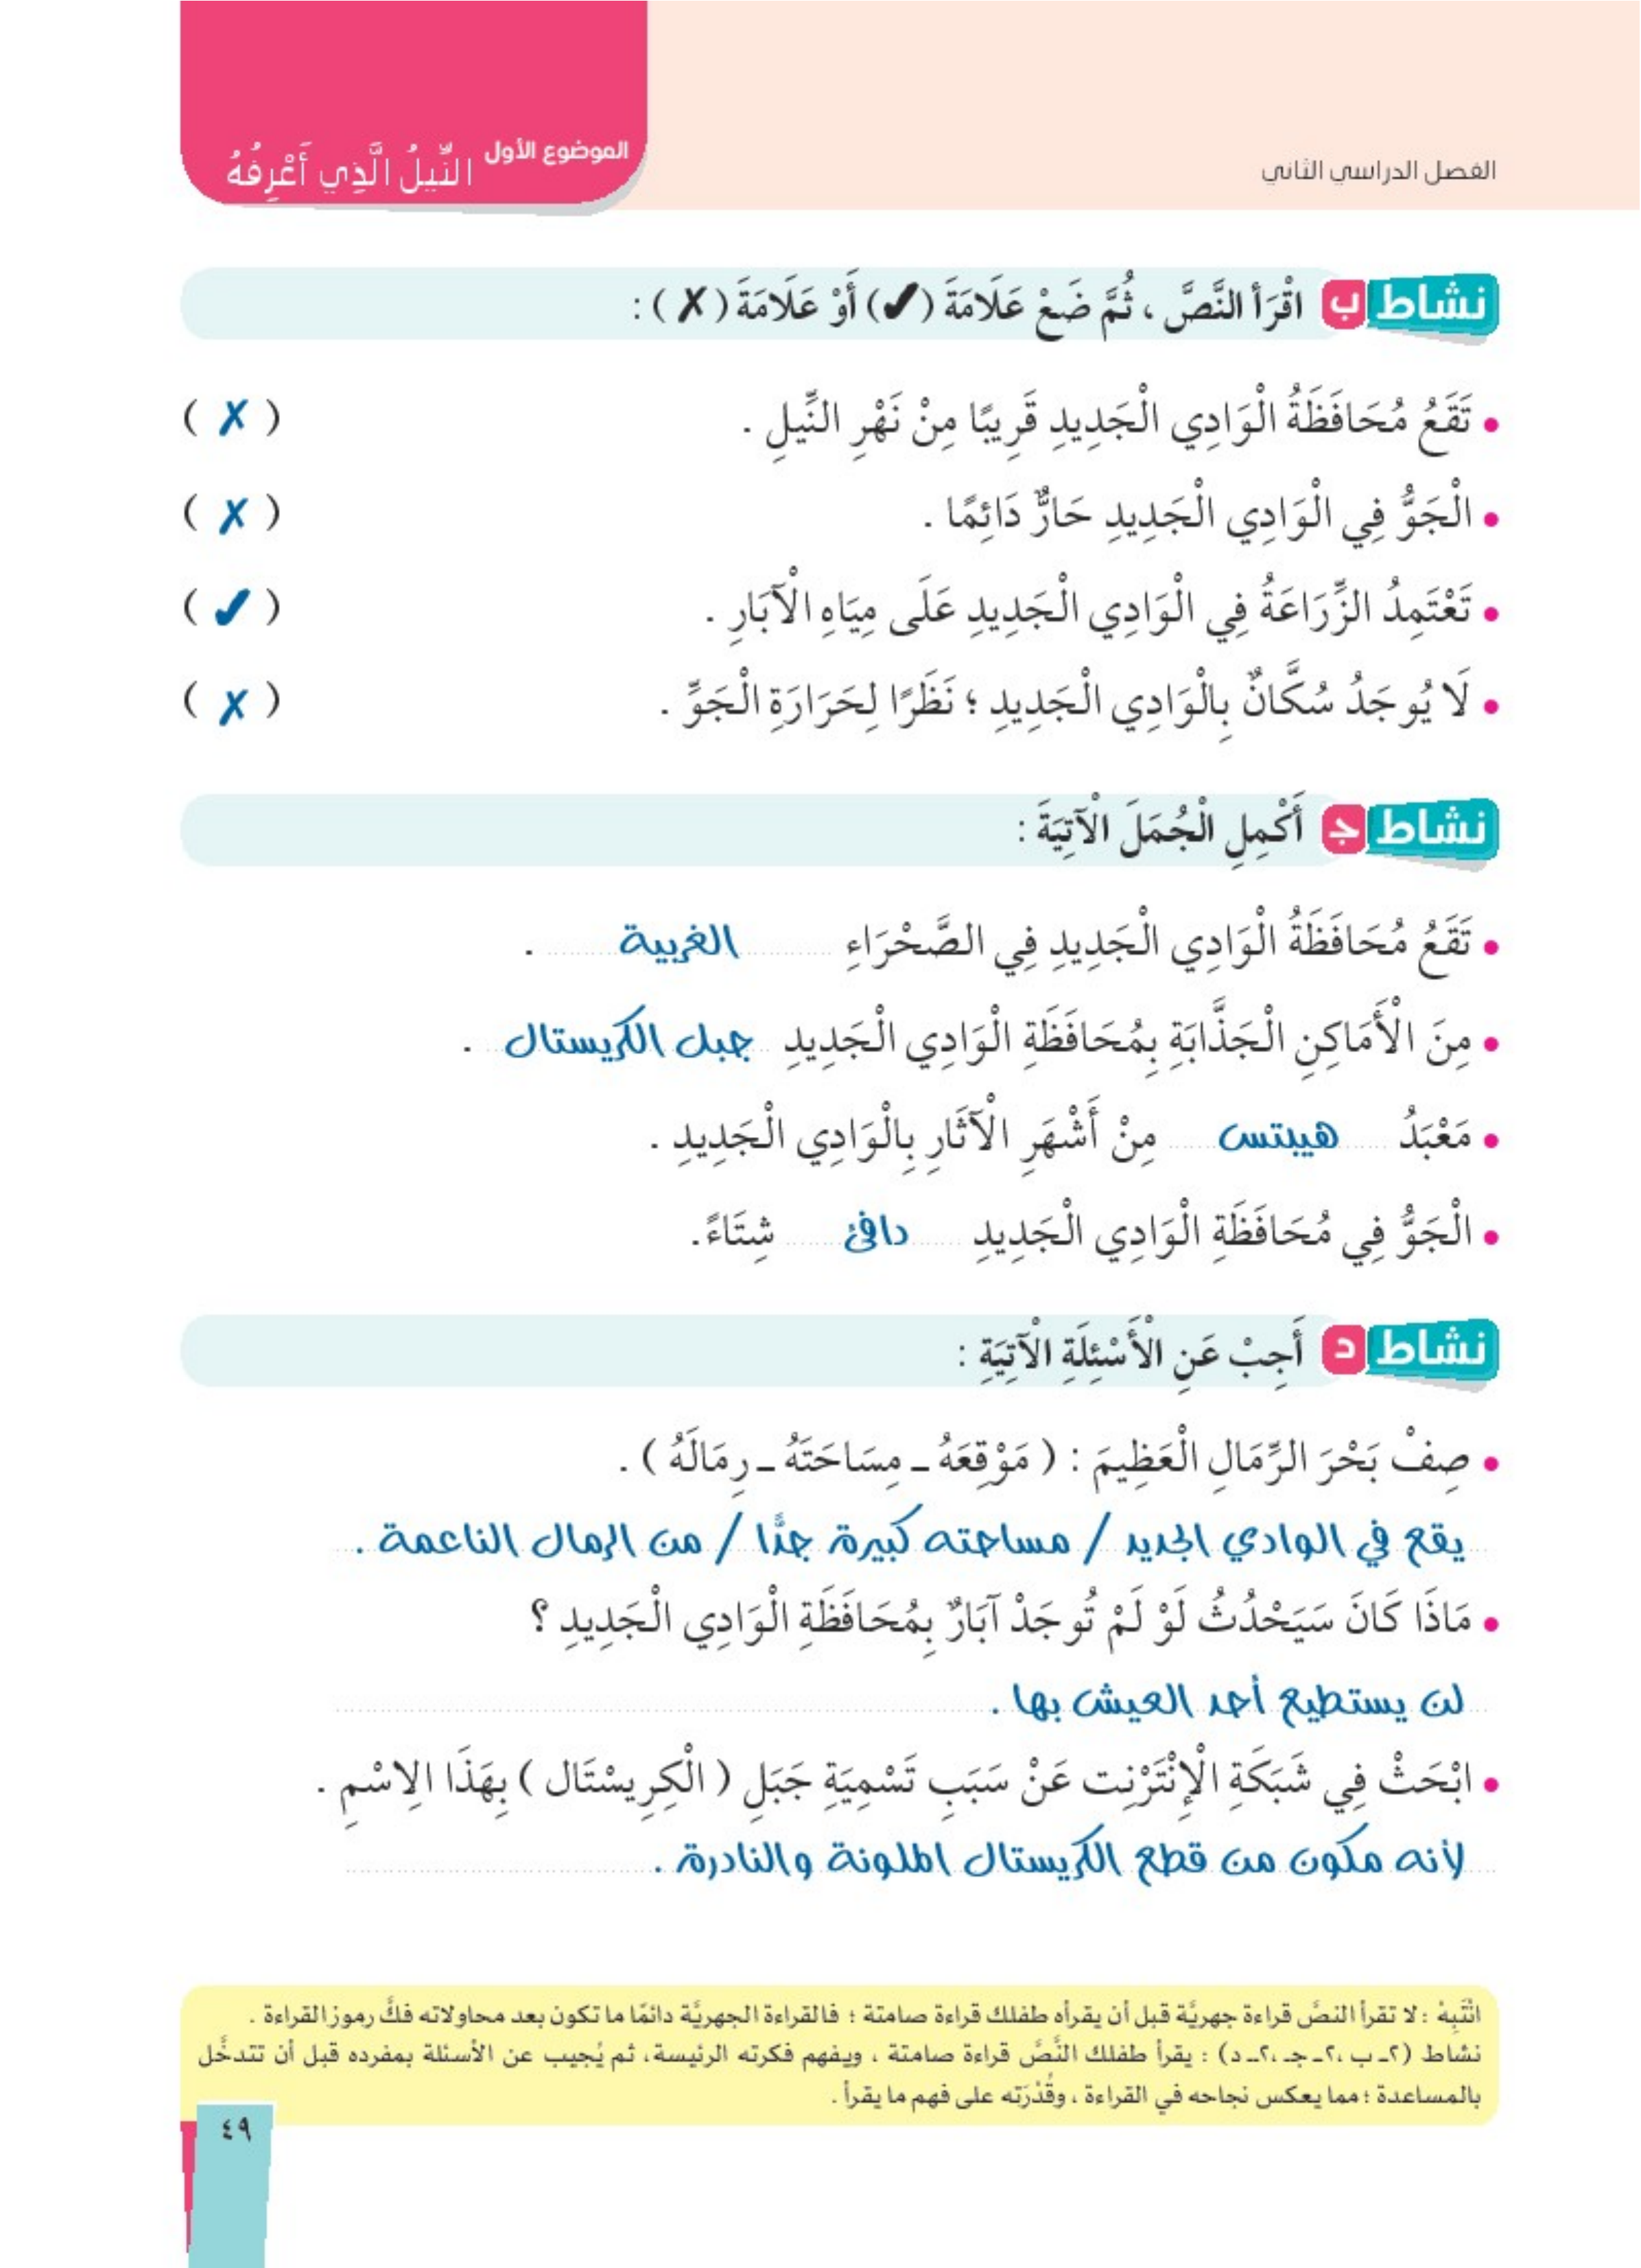 الفصل الدراسي الثاني
الموضوع الأول النِّيلُ الَّذِي أَعْرِفُهُ
نشاط ب اقْرَأ النَّصَّ ، ثُمَّ ضَعْ عَلَامَةَ (✔) أَوْ عَلَامَةَ (✗) :
• تَقَعُ مُحَافَظَةُ الْوَادِي الْجَدِيدِ قَرِيبًا مِنْ نَهْرِ النِّيلِ . ( ✗ )
• الْجَوُّ فِي الْوَادِي الْجَدِيدِ حَارٌّ دَائِمًا . ( ✗ )
• تَعْتَمِدُ الزِّرَاعَةُ فِي الْوَادِي الْجَدِيدِ عَلَى مِيَاهِ الْآبَارِ . ( ✔ )
• لَا يُوجَدُ سُكَّانٌ بِالْوَادِي الْجَدِيدِ ؛ نَظَرًا لِحَرَارَةِ الْجَوِّ . ( ✗ )
نشاط ج أَكْمِلِ الْجُمَلَ الْآتِيَةَ :
• تَقَعُ مُحَافَظَةُ الْوَادِي الْجَدِيدِ فِي الصَّحْرَاءِ الغربية .
• مِنَ الْأَمَاكِنِ الْجَذَّابَةِ بِمُحَافَظَةِ الْوَادِي الْجَدِيدِ جبل الكريستال .
• مَعْبَدُ هيبتس مِنْ أَشْهَرِ الْآثَارِ بِالْوَادِي الْجَدِيدِ .
• الْجَوُّ فِي مُحَافَظَةِ الْوَادِي الْجَدِيدِ دافئ شِتَاءً.
نشاط د أَجِبْ عَنِ الْأَسْئِلَةِ الْآتِيَةِ :
• صِفْ بَحْرَ الرِّمَالِ الْعَظِيمَ : ( مَوْقِعَهُ ـ مِسَاحَتَهُ ـ رِمَالَهُ ) .
يقع في الوادي الجديد / مساحته كبيرة جدًّا / من الرمال الناعمة .
• مَاذَا كَانَ سَيَحْدُثُ لَوْ لَمْ تُوجَدْ آبَارٌ بِمُحَافَظَةِ الْوَادِي الْجَدِيدِ ؟
لن يستطيع أحد العيش بها .
• ابْحَثْ فِي شَبَكَةِ الْإِنْتَرْنِت عَنْ سَبَبِ تَسْمِيَةِ جَبَلِ ( الْكِرِيسْتَال ) بِهَذَا الِاسْمِ .
لأنه مكون من قطع الكريستال الملونة والنادرة .
انْتَبِهْ : لا تقرأ النصَّ قراءة جهريَّة قبل أن يقرأه طفلك قراءة صامتة ؛ فالقراءة الجهريَّة دائمًا ما تكون بعد محاولاته فكَّ رموز القراءة .
نشاط (٢ـ ب ،٢ـ جـ ،٢ـ د) : يقرأ طفلك النَّصَّ قراءة صامتة ، ويفهم فكرته الرئيسة، ثم يُجيب عن الأسئلة بمفرده قبل أن تتدخَّل
بالمساعدة ؛ مما يعكس نجاحه في القراءة ، وقُدْرَته على فهم ما يقرأ .
٤٩